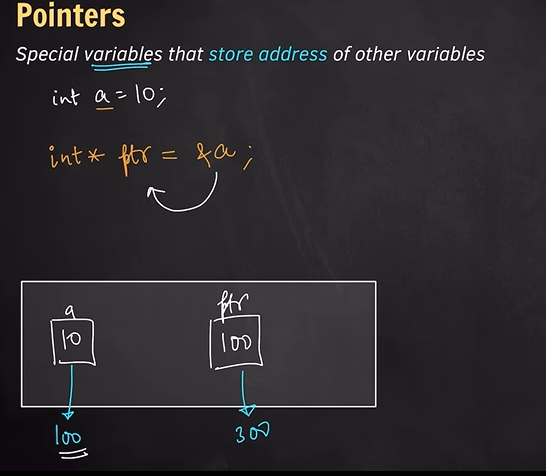 Pointers
Special variables that store address of other variables
int a = 10;
int* ptr = &a;
a ptr
10 100
100 300